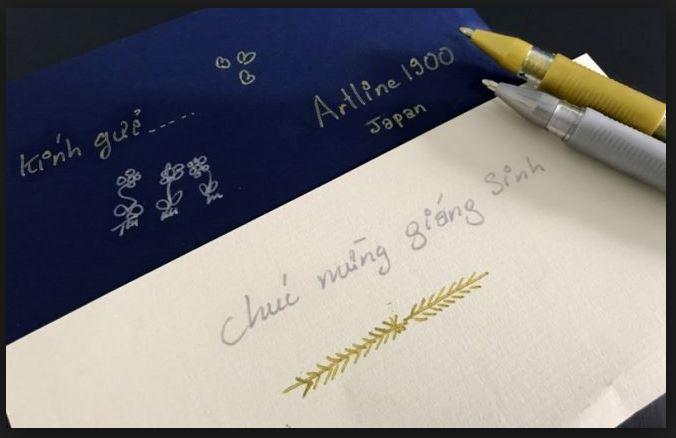 Artline 1900
Japan
Kính gửi.....
chúc mừng giáng Sinh